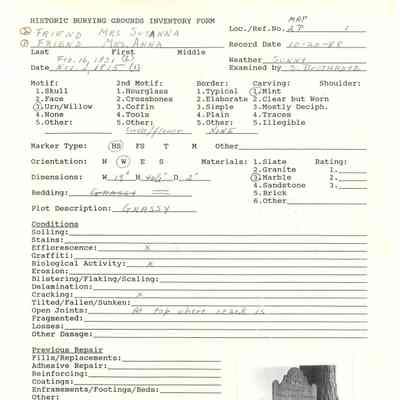 HISTORIC BURYING GROUNDS INVENTORY FORM
MAP
② FRIEND MRS SUSANNA
Loc./Ref.No. AP 1
① FRIEND MRS. ANNA
Last First Middle
Record Date 10-20-88
Feb. 16, 1831 (2)
Weather SUNNY
Date Nov. 2, 1815 (1)
Examined by
Motif: 2nd Motif: Border: Carving: Shoulder:
1.Skull 1.Hourglass 1.Typical 1.Mint
2.Face 2.Crossbones 2.Elaborate 2.Clear but Worn
3.Urn/Willow 3.Coffin 3.Simple 3.Mostly Deciph.
4.None 4.Tools 4.Plain 4.Traces
5.Other: 5.Other: 5.Other: 5.Illegible
NONE
Marker Type: HS FS T M Other
Orientation: N W E S Materials: 1.Slate Rating:
2.Granite 1.
Dimensions: W 19" H 40½" D 2" 3.Marble 2.
4.Sandstone 3.
Bedding: GRASSY 5.Brick
6.Other
Plot Description: GRASSY
Conditions
Soiling:
Stains:
Efflorescence: x
Graffiti:
Biological Activity: x
Erosion:
Blistering/Flaking/Scaling:
Delamination:
Cracking: x
Tilted/Fallen/Sunken:
Open Joints: At top where crack is
Fragmented:
Losses:
Other Damage:
Previous Repair
Fills/Replacements:
Adhesive Repair:
Reinforcing:
Coatings:
Enframements/Footings/Beds:
Other: